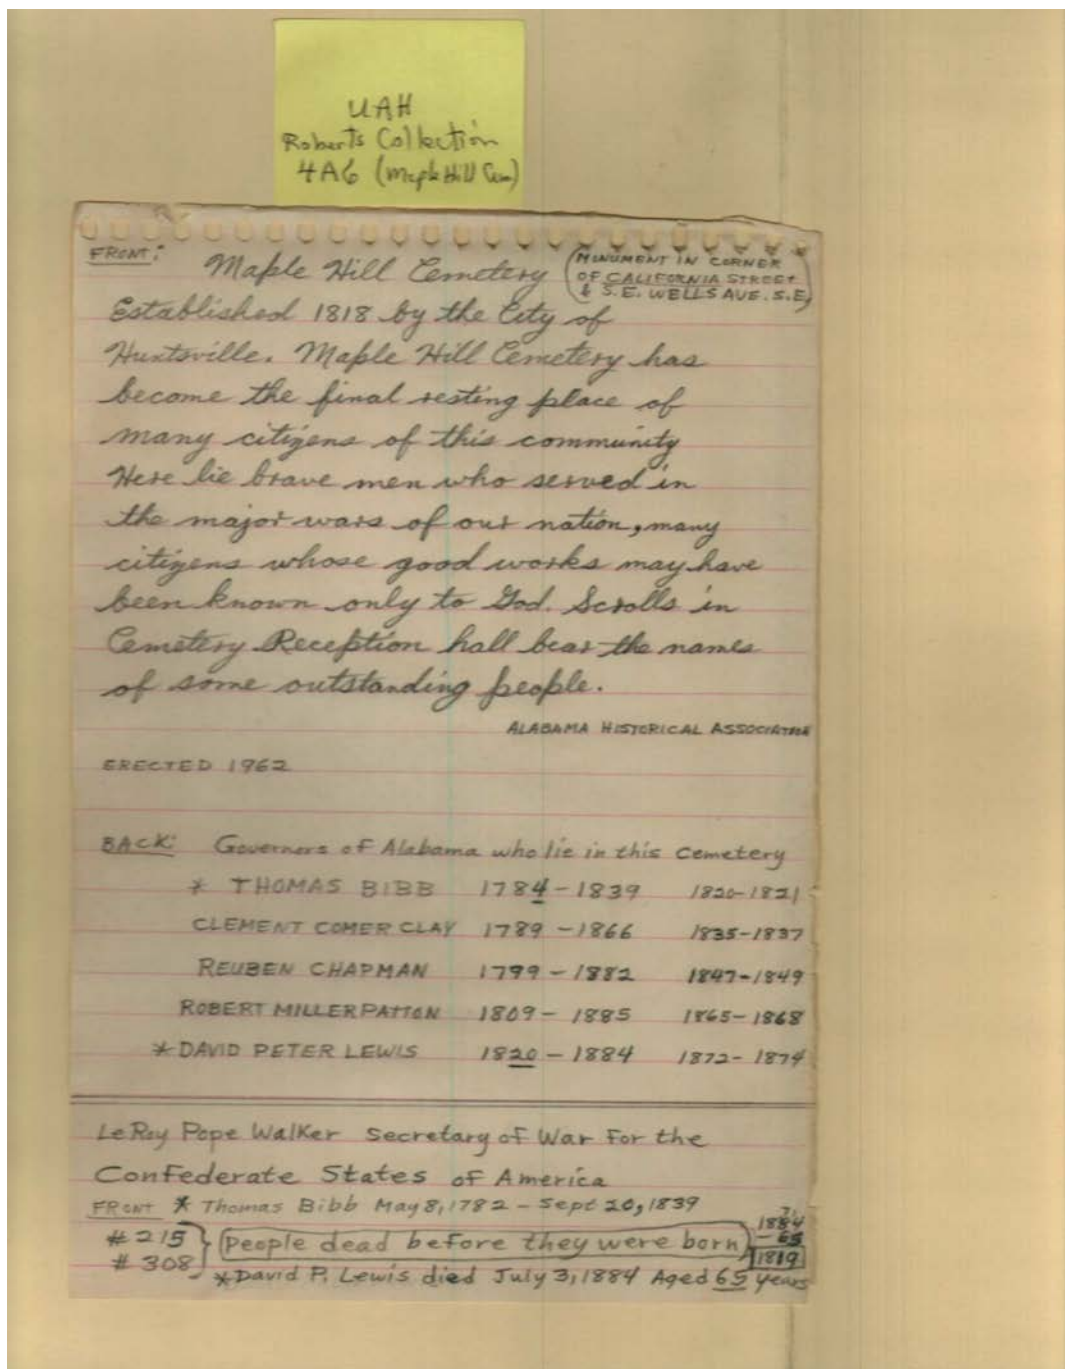 UAH
Roberts Collection
4A6 (Maple Hill Cem)
FRONT: Maple Hill Cemetery (MONUMENT IN CORNER
OF CALIFORNIA STREET
& S.E. WELLS AVE. S.E)
Established 1818 by the City of
Huntsville. Maple Hill Cemetery has
become the final resting place of
many citizens of this community
Here lie brave men who served in
the major wars of our nation, many
citizens whose good works may have
been known only to God. Scrolls in
Cemetery Reception hall bear the names
of some outstanding people.
ALABAMA HISTORICAL ASSOCIATION
ERECTED 1962
BACK: Governors of Alabama who lie in this Cemetery
* THOMAS BIBB 1784-1839 1820-1821
CLEMENT COMER CLAY 1789-1866 1835-1837
REUBEN CHAPMAN 1799-1882 1847-1849
ROBERT MILLER PATTON 1809-1885 1865-1868
* DAVID PETER LEWIS 1820-1884 1872-1874
LeRoy Pope Walker Secretary of War For the
Confederate States of America
FRONT * Thomas Bibb May 8, 1782 - Sept 20, 1839
#215 } People dead before they were born
# 308
1884
- 65
1819
* David P. Lewis died July 3, 1884 Aged 65 years